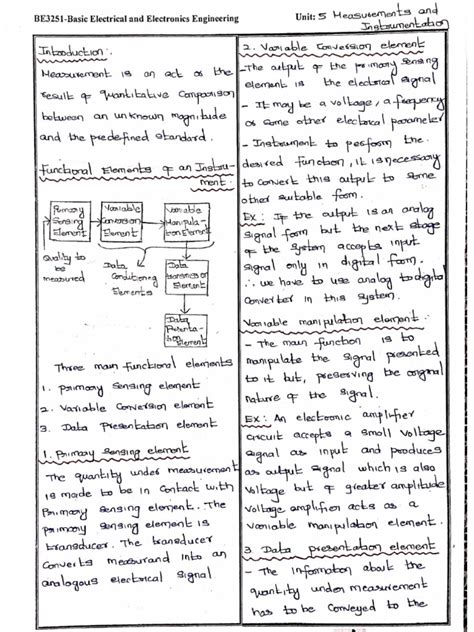 BE3251-Basic Electrical and Electronics Engineering
Unit: 5 Measurements and
Instrumentation
Introduction:
Measurement is an act or the
result of quantitative comparison
between an unknown magnitude
and the predefined standard.
Functional Elements of an Instru-
ment:
Primary
Sensing
Element
Variable
Conversion
Element
Variable
Manipula-
tion Element
Quality to
be
measured
Data
Conditioning
Elements
Data
transmission
Element
Data
Presenta-
tion Element
Three main functional elements
1. Primary Sensing element
2. Variable Conversion element
3. Data Presentation element
1. Primary Sensing element
The quantity under measurement
is made to be in Contact with
Primary Sensing element. The
primary sensing element is
transducer. The transducer
Converts measurand into an
analogous electrical signal
2. Variable Conversion element
-The output of the primary sensing
element is the electrical signal
- It may be a voltage, a frequency
or some other electrical parameter
- Instrument to perform the
desired function, it is necessary
to convert this output to some
other suitable form.
Ex: If the output is an analog
signal form but the next stage
of the system accepts input
signal only in digital form.
∴ we have to use analog to digital
Converter in this system.
Variable manipulation element:
- The main function is to
manipulate the signal presented
to it but, preserving the original
nature of the signal.
Ex: An electronic amplifier
circuit accepts a small voltage
signal as input and produces
as output signal which is also
voltage but of greater amplitude
voltage amplifier acts as a
variable manipulation element.
3. Data presentation element
- The information about the
quantity under measurement
has to be conveyed to the